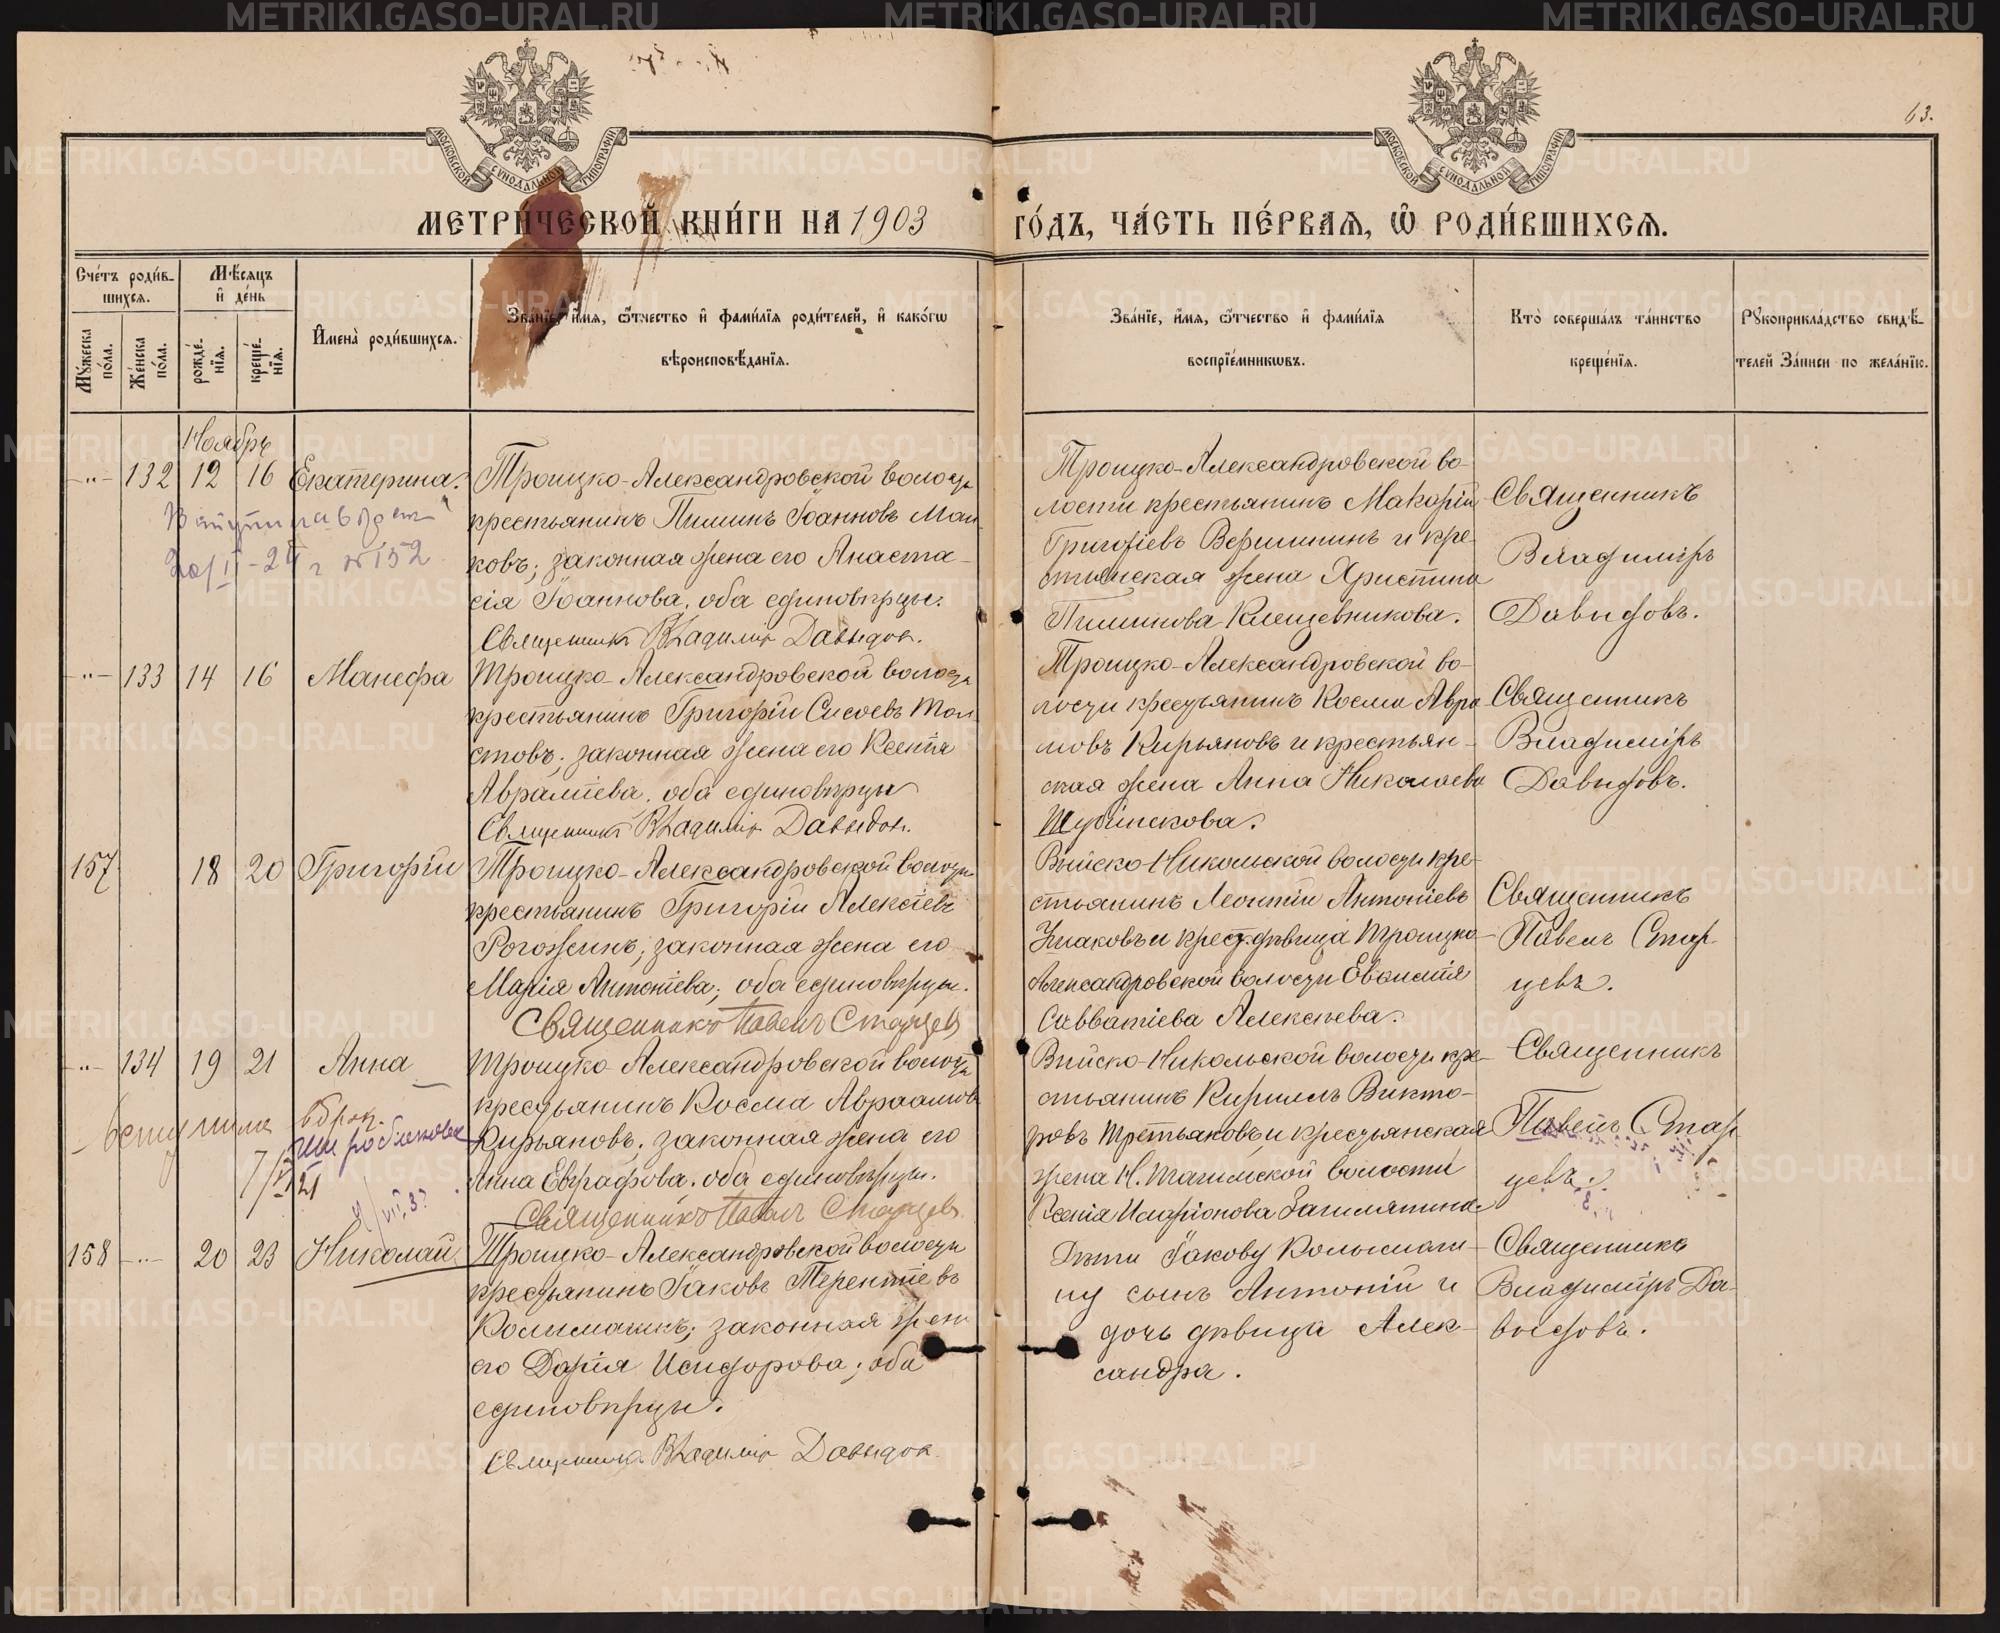 63.
МОСКОВСКОЙ СУНОДАЛЬНОЙ ТИПОГРАФІИ
МОСКОВСКОЙ СУНОДАЛЬНОЙ ТИПОГРАФІИ
МЕТРИ́ЧЕСКОЙ КНИ́ГИ НА 1903
ГО́ДЪ, ЧА́СТЬ ПЕ́РВАЯ, Ѽ РОДИ́ВШИХСЯ.
Сче́тъ роди́в-
шихся.
Мѣ́сяцъ
и҆ де́нь
Му́жеска по́ла.
Же́нска по́ла.
рожде́-
нїя.
креще́-
нїя.
И҆мена̀ роди́вшихся.
Зва́нїе, и҆́мя, ѻ҆́тчество и҆ фами́лїя роди́телей, и҆ како́гѡ
вѣроисповѣ́данїя.
Зва́нїе, и҆́мя, ѻ҆́тчество и҆ фами́лїя
воспрїе́мникѡвъ.
Кто̀ соверша́лъ та́инство
креще́нїя.
Рукоприкла́дство свидѣ́-
телей За́писи по жела́нїю.
Ноябрь
-"- 132 12 16 Екатерина.
Троицко-Александровской волости
крестьянинъ Пиминъ Іоанновъ
ковъ; законная жена его Анаста-
сія Іоаннова, оба единовѣрцы.
Священникъ Владимір Давыдов.
Троицко-Александровской во-
лости крестьянинъ Макарій
Григоріевъ Вершининъ и кре-
стьянская жена Христина
Пиминова Клещевникова.
Священникъ
Владиміръ
Давыдовъ.
№ 152
-"- 133 14 16 Манефа
Троицко-Александровской волости
крестьянинъ Григорій Сысоевъ Тол-
стовъ; законная жена его Ксенія
Авраміева, оба единовѣрцы
Священникъ Владимір Давыдов.
Троицко-Александровской во-
лости крестьянинъ Косма Авра
мовъ Кирьяновъ и крестьян-
ская жена Анна Николаева
Священникъ
Владиміръ
Давыдовъ.
157 18 20 Григорій
Троицко-Александровской волости
крестьянинъ Григорій Алексіевъ
Рогожинъ; законная жена его
Марія Антоніева; оба единовѣрцы.
Священникъ Павелъ Старцев
Выйско-Никольской волости кре-
стьянинъ Леонтій Антоніевъ
Ушаковъ и крест. дѣвица Троицко-
Александровской волости
Савватіева Алексѣева.
Священникъ
Павелъ Стар-
цевъ.
-"- 134 19 21 Анна
Троицко-Александровской волости
крестьянинъ Косма Авраамов
Кирьяновъ; законная жена его
Анна Евграфова, оба единовѣрцы.
Священникъ Павелъ Старцев
Выйско-Никольской волости кре-
стьянинъ Кириллъ Викто-
ровъ Третьяковъ и крестьянская
жена Н. Тагильской волости
Ксенія Иларіонова
Священникъ
Павелъ Стар
цевъ.
вступила в брак
158 -"- 20 23 Николай
Троицко-Александровской волости
крестьянинъ Іаковъ Терентіевъ
законная жен
его Дарія Исидорова; оба
единовѣрцы.
Священникъ Владимір Давыдов.
Дѣти Іакову
ну сынъ Антоній и
дочь дѣвица Алек-
сандра.
Священникъ
Владиміръ Да-
выдовъ.
METRIKI.GASO-URAL.RU